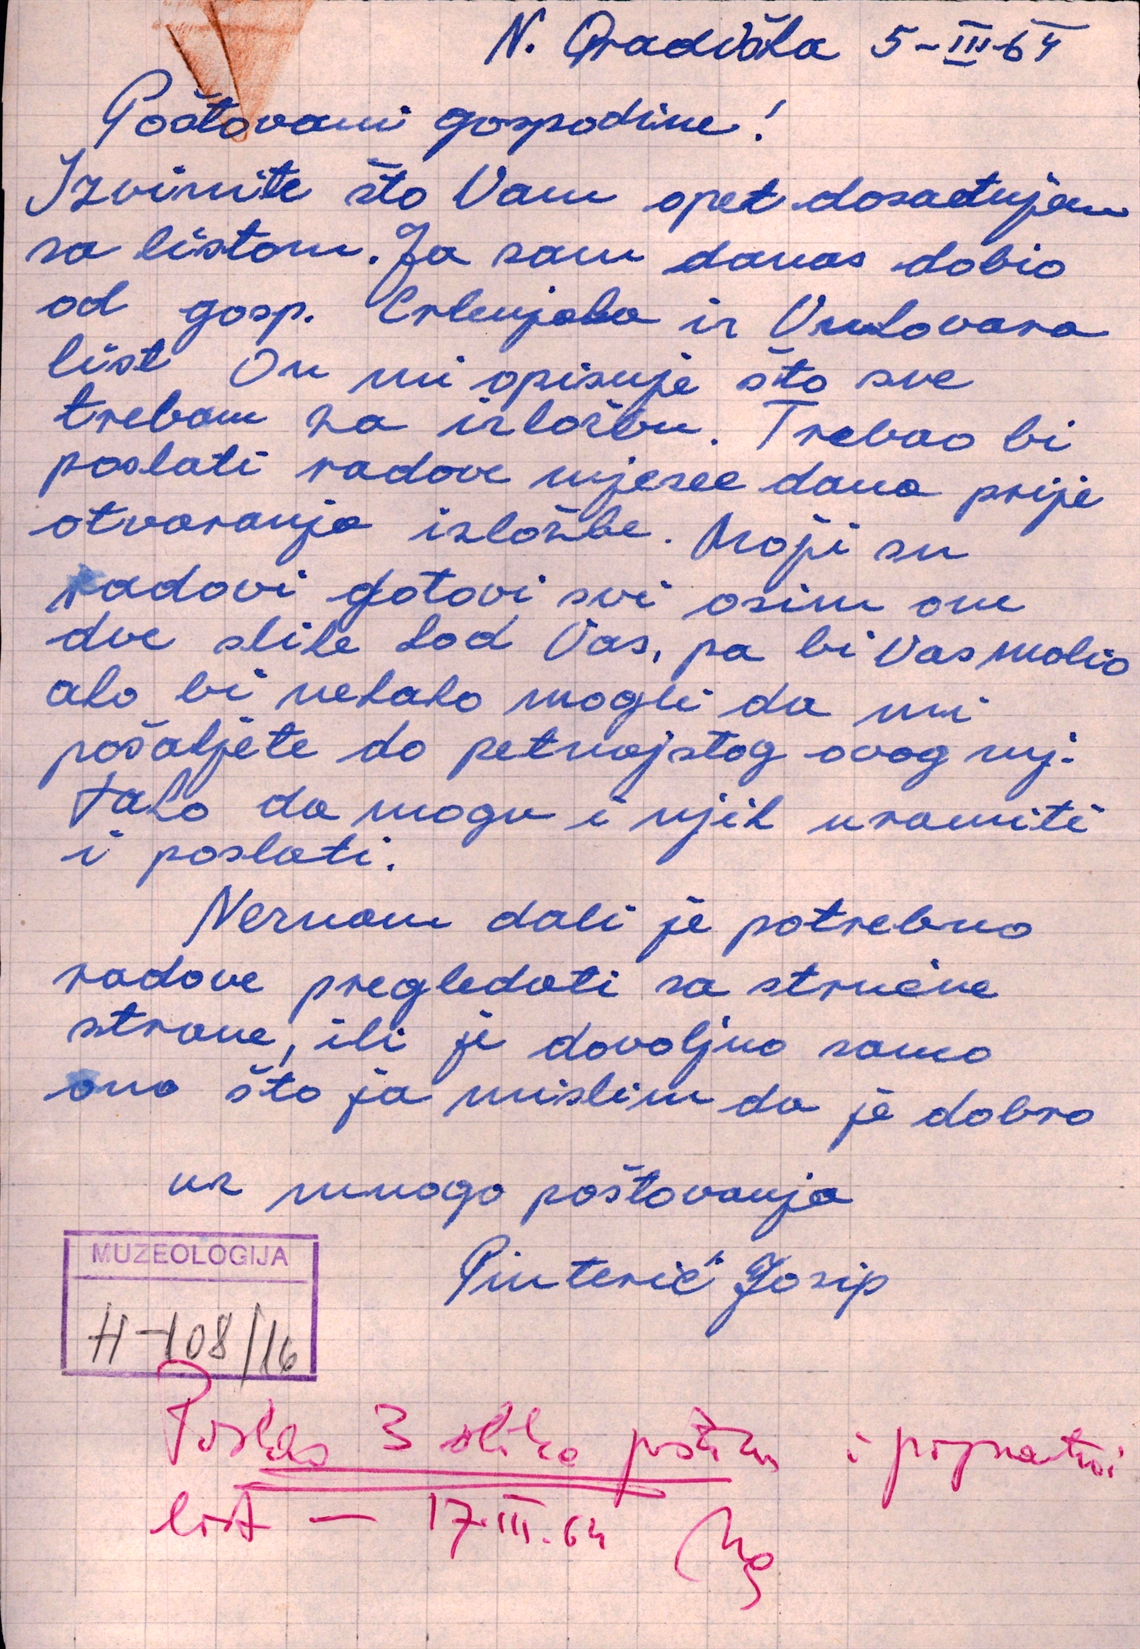 N. Gradiška 5-III-64
Poštovani gospodine!
Izvinite što Vam opet dosađujem
sa listom. Ja sam danas dobio
od gosp. Crlenjaka iz Vukovara
list On mi opisuje što sve
trebam za izložbu. Trebao bi
poslati radove mjesec dana prije
otvaranja izložbe. Moji su
radovi gotovi svi osim one
dve slike kod Vas, pa bi Vas molio
ako bi nekako mogli da mi
pošaljete do petnajstog ovog mj.
tako da mogu i njih uramiti
i poslati.
Neznam dali je potrebno
radove pregledati sa stručne
strane, ili je dovoljno samo
ono što ja mislim da je dobro
uz mnogo poštovanja
Pinterić Josip
MUZEOLOGIJA
H-108/16
Poslao 3 slike poštom i propratni
list — 17.III.64